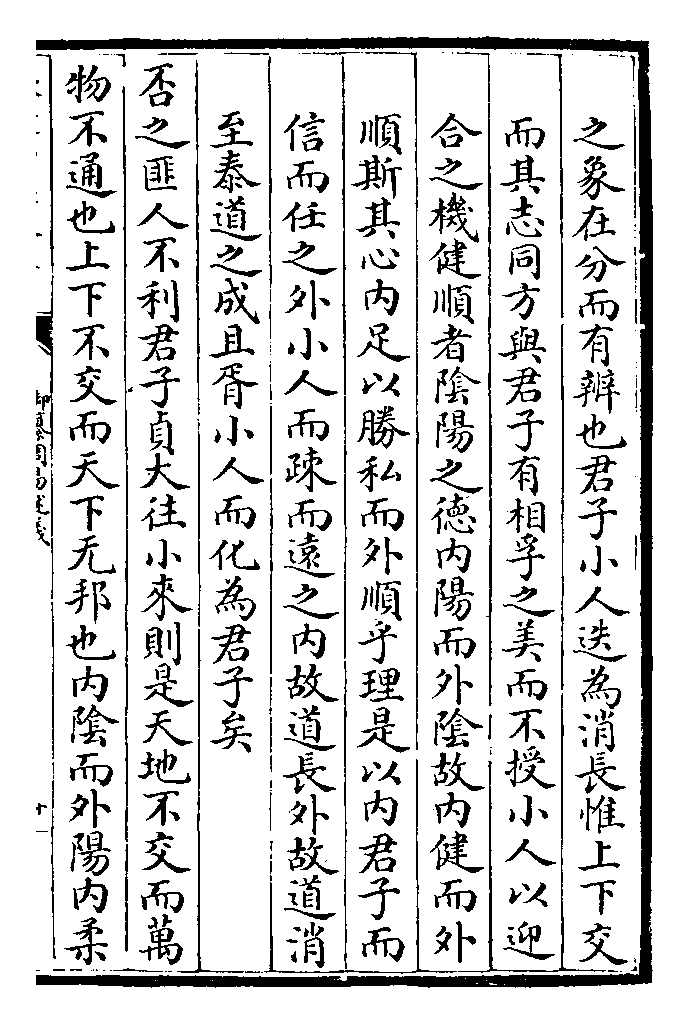 之象在分而有辨也君子小人迭為消長惟上下交
而其志同方與君子有相孚之美而不授小人以迎
合之機健順者陰陽之德内陽而外陰故内健而外
順斯其心内足以勝私而外順乎理是以内君子而
信而任之外小人而疎而遠之内故道長外故道消
至泰道之成且胥小人而化為君子矣
否之匪人不利君子貞大往小來則是天地不交而萬
物不通也上下不交而天下无邦也内陰而外陽内柔
御纂周易述義